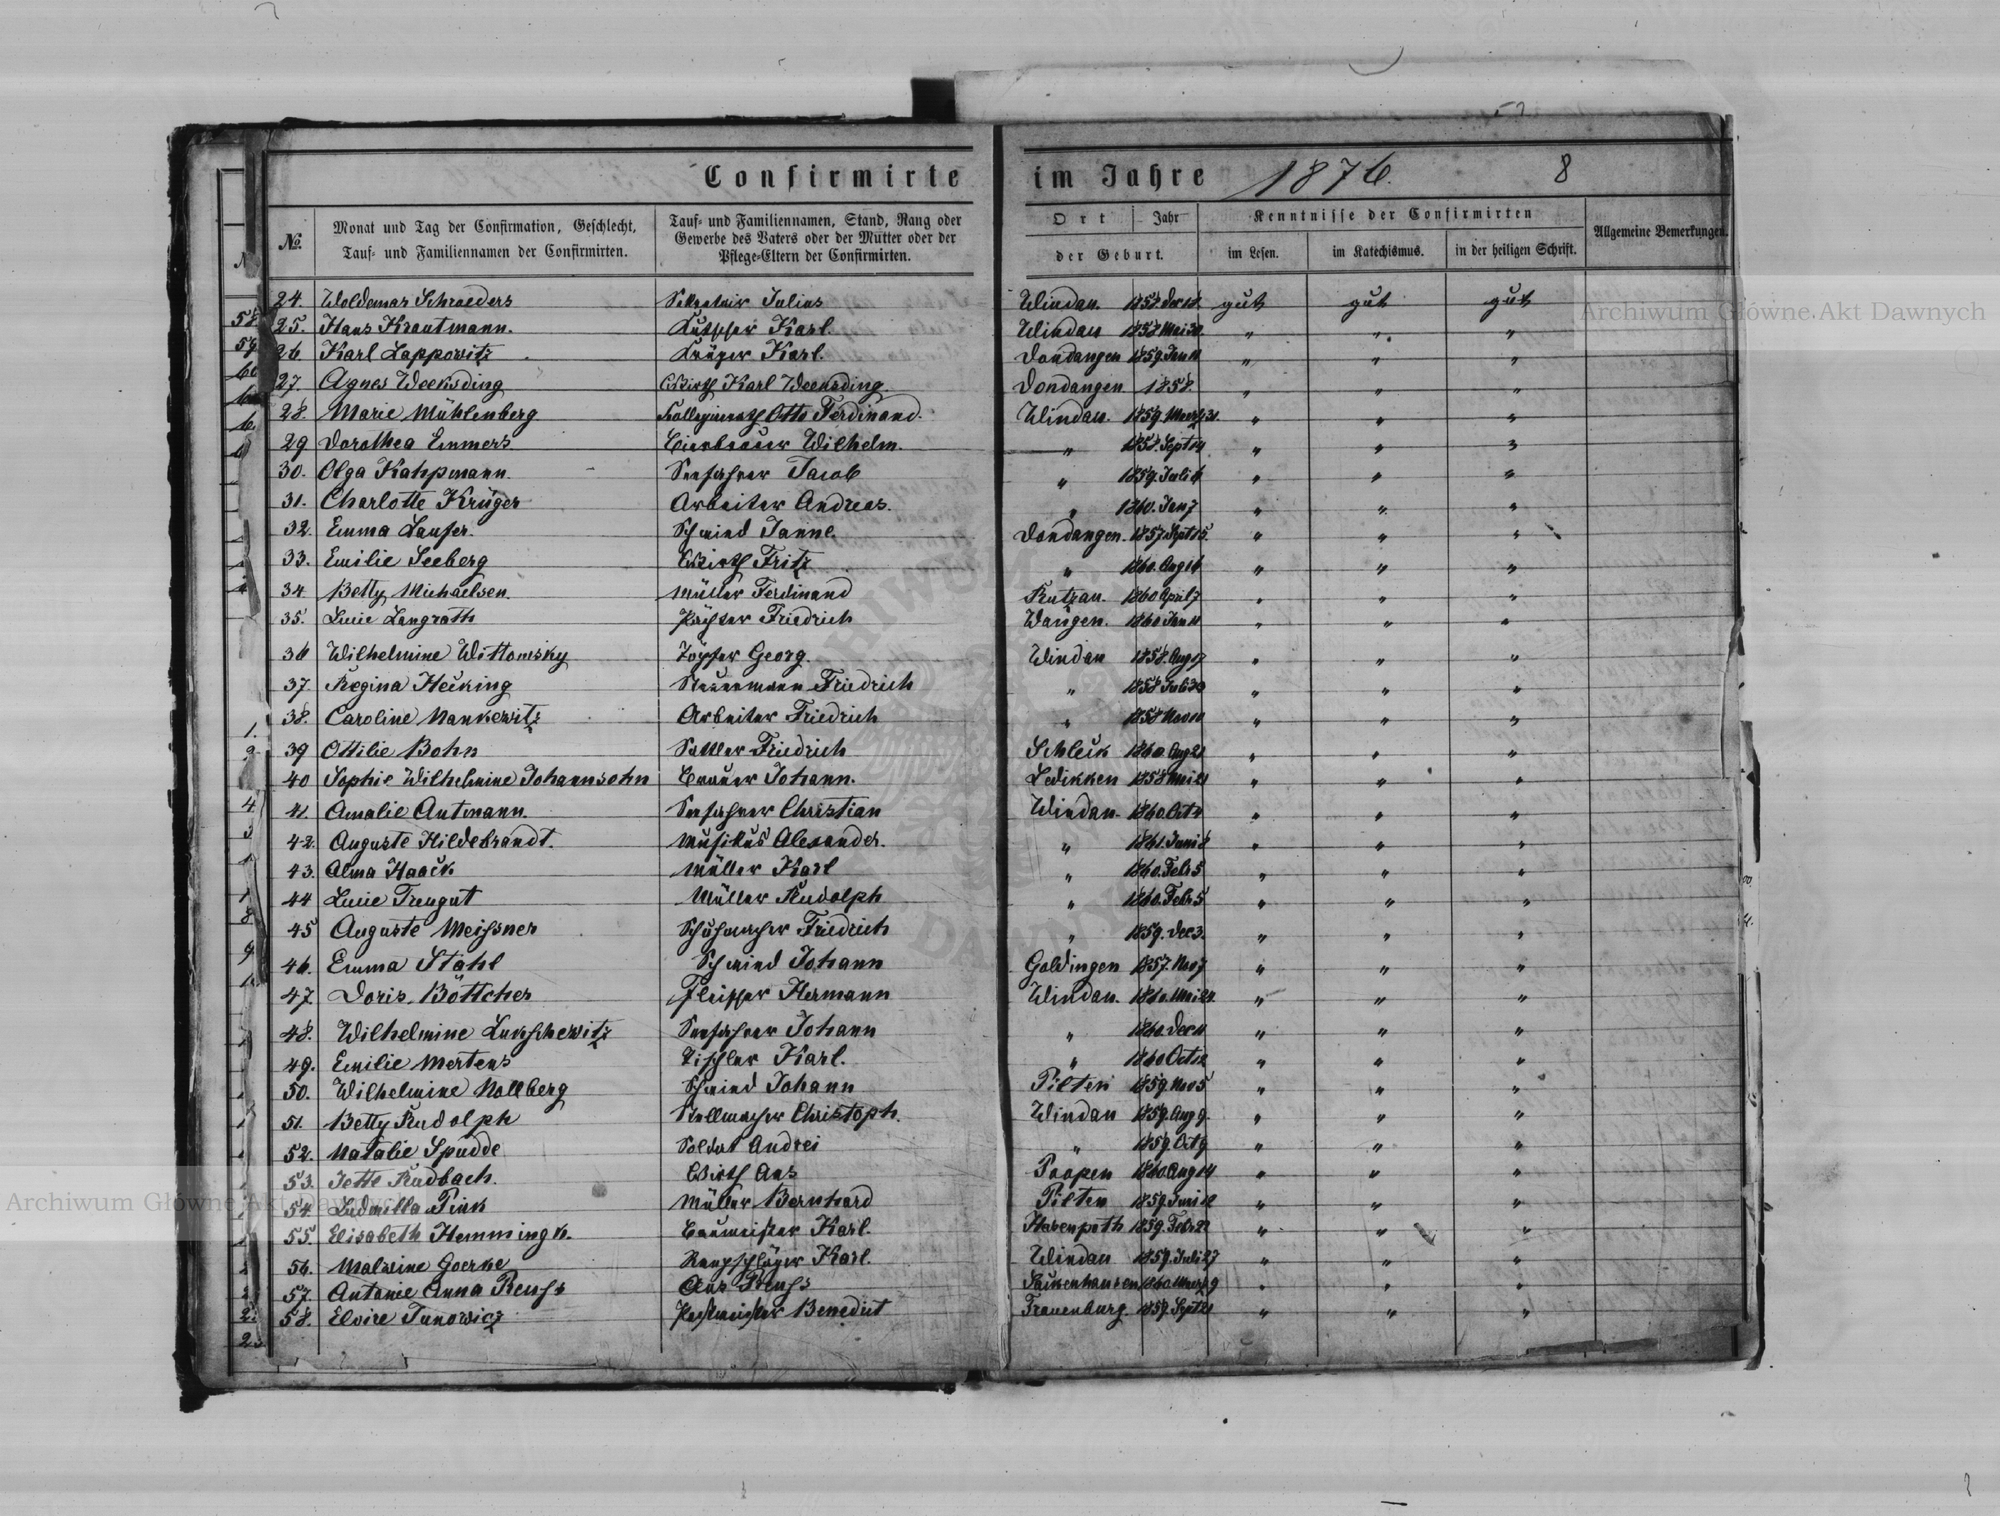 Confirmirte im Jahre 1876. 8
No. Monat und Tag der Confirmation, Geschlecht, Tauf- und Familiennamen der Confirmirten.
Tauf- und Familiennamen, Stand, Rang oder Gewerbe des Vaters oder der Mutter oder der Pflege-Eltern der Confirmirten.
Ort Jahr der Geburt.
Kenntnisse der Confirmirten
im Lesen. im Katechismus. in der heiligen Schrift.
Allgemeine Bemerkungen.
24. Woldemar Schroeders Julius Windau. gut gut gut
25. Hans Krautmann. Kutscher Karl. Windau 1858 Mai " " "
26 Karl Lappowitz Krüger Karl. Dondangen 1859. Jan " " "
27. Agnes Weeksding Wirth Karl Weeksding. Dondangen 1858. " " "
28. Marie Mühlenberg Otto Ferdinand. Windau. 1859. März 31. " " "
29 Dorothea Emmers Bierbrauer Wilhelm. " 1858. Sept 14 " " "
30. Olga Kahpmann. Seefahrer Jacob " 1859. Juli 6 " " "
31. Charlotte Krüger Arbeiter Andreas. " 1860. Jan 7 " " "
32. Emma Laufer. Schmied Janne. Dondangen. 1857. Sept 15. " " "
33. Emilie Seeberg Wirth Fritz " 1860. Aug 16 " " "
34 Betty Michaelsen. Müller Ferdinand Rutzau. 1860 April 7 " " "
35. Lucie Langrath Pächter Friedrich Wangen. 1860 Jan " " "
36 Wilhelmine Wittomsky Töpfer Georg. Windau 1858. Aug 17 " " "
37. Regina Hecking Steuermann Friedrich " 1858 Juli 30 " " "
38. Caroline Mankewitz Arbeiter Friedrich " 1858 Nov " " "
39 Ottilie Bohn Sattler Friedrich Schleck 1860. Aug 21 " " "
40 Sophie Wilhelmine Johannsohn Brauer Johann. Ledikken 1858 Mai " " "
41. Amalie Autmann. Seefahrer Christian Windau. 1860. Oct " " "
42. Auguste Hildebrandt. Musikus Alexander. " 1861. Juni 8 " " "
43. Alma Haack Müller Karl " 1860. Febr 5 " " "
44 Lucie Treugut Müller Rudolph " 1860. Febr 5 " " "
45 Auguste Meissner Schuhmacher Friedrich " 1859. Dec 3. " " "
46. Emma Stahl Schmied Johann Goldingen 1857. Nov 7 " " "
47. Doris Böttcher Fleischer Hermann Windau. 1860. Mai 24 " " "
48. Wilhelmine Lukschewitz Seefahrer Johann " 1860. Dec " " "
49. Emilie Mertens Tischler Karl. " 1860 Oct 12 " " "
50. Wilhelmine Nollberg Schmied Johann Pilten 1859. Nov 5 " " "
51. Betty Rudolph Stellmacher Christoph. Windau 1859. Aug 9. " " "
52. Natalie Spudde Soldat Andrei " 1859. Oct 9 " " "
53. Jette Radbach. Wirth Ans Poopen 1860. Aug 14 " " "
54 Ludmilla Pink Müller Bernhard Pilten 1859. Juni 12 " " "
55. Elisabeth Hemmingk. Baumeister Karl. Hasenpoth 1859. Febr 22 " " "
56. Malwine Goerke Reepschläger Karl. Windau 1859. Juli 27 " " "
57. Antonie Anna Reuss Ans Reuss Sackenhausen 1860 März 9 " " "
58. Elvire Janowicz Postmeister Benedict Frauenburg. 1859. Sept 21 " " "
Archiwum Główne Akt Dawnych
Archiwum Główne Akt Dawnych